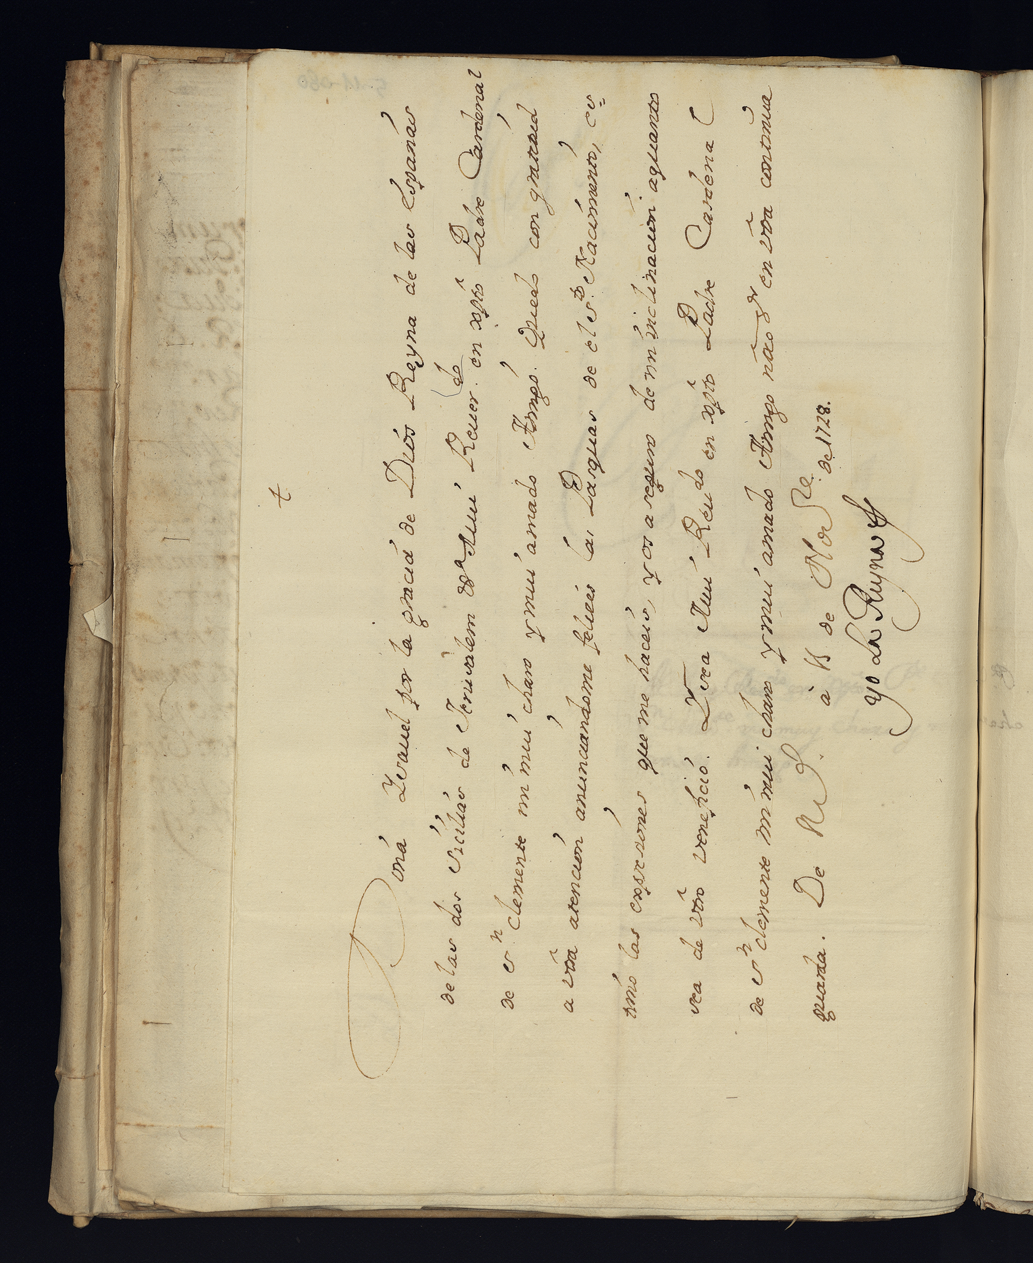 t
Doná Ysauel por la graciá de Diós Reyna de las españás
de las dos siciliás de Jerusálem &ª Muí Reuer.do en xpto Padre Cardenal
de sn clemente mí muí charo y muí amado Amigo. Quedo con gratitud
a vra atencion anunciandome felices las Pasquas de el sto. Nacimiento, es=
timo las expresiones que me haceis, y os aseguro de mí inclinacion a quanto
sea de vro veneficio. Y sea Muí Reudo en xpto Padre Cardenal
de sn clemente mí muí charo y muí amado Amigo nro sr en vra continua
guarda. De à 18 de Nore. de 1728.
Yo La Reyna